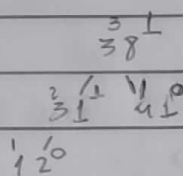 3 3 8 1
2 3 1 1 4 1 0
1 1 2 0